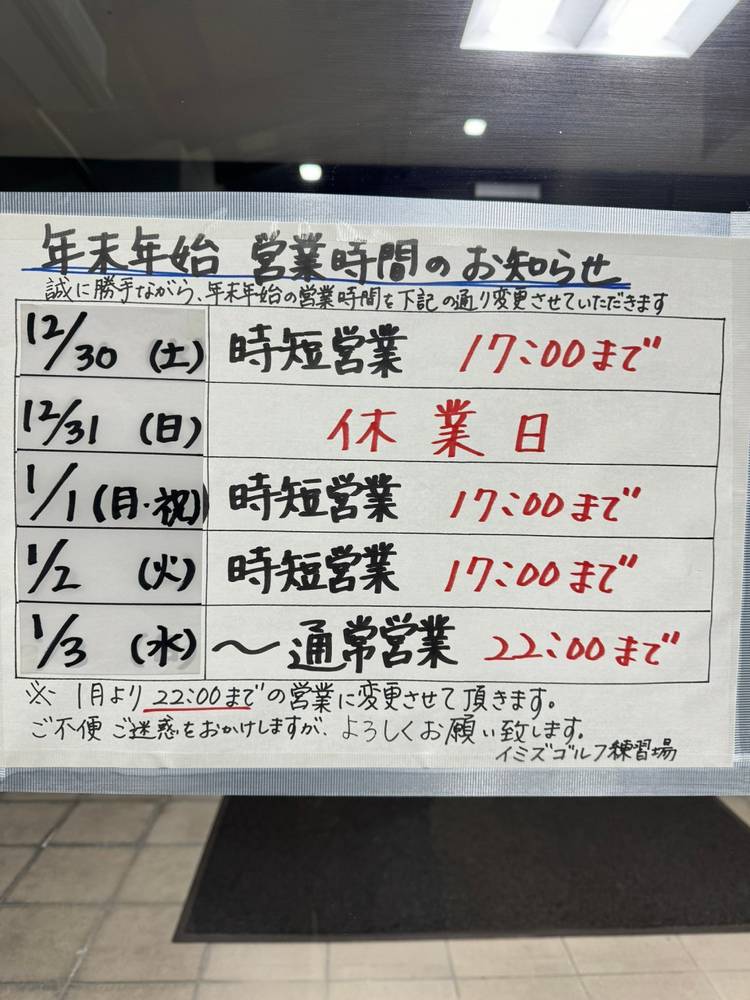 年末年始 営業時間のお知らせ
誠に勝手ながら、年末年始の営業時間を下記の通り変更させていただきます
12/30 (土) 時短営業 17:00まで
12/31 (日) 休業日
1/1 (月・祝) 時短営業 17:00まで
1/2 (火) 時短営業 17:00まで
1/3 (水) 〜通常営業 22:00まで
※ 1月より22:00までの営業に変更させて頂きます。
ご不便ご迷惑をおかけしますが、よろしくお願い致します。
イミズゴルフ練習場